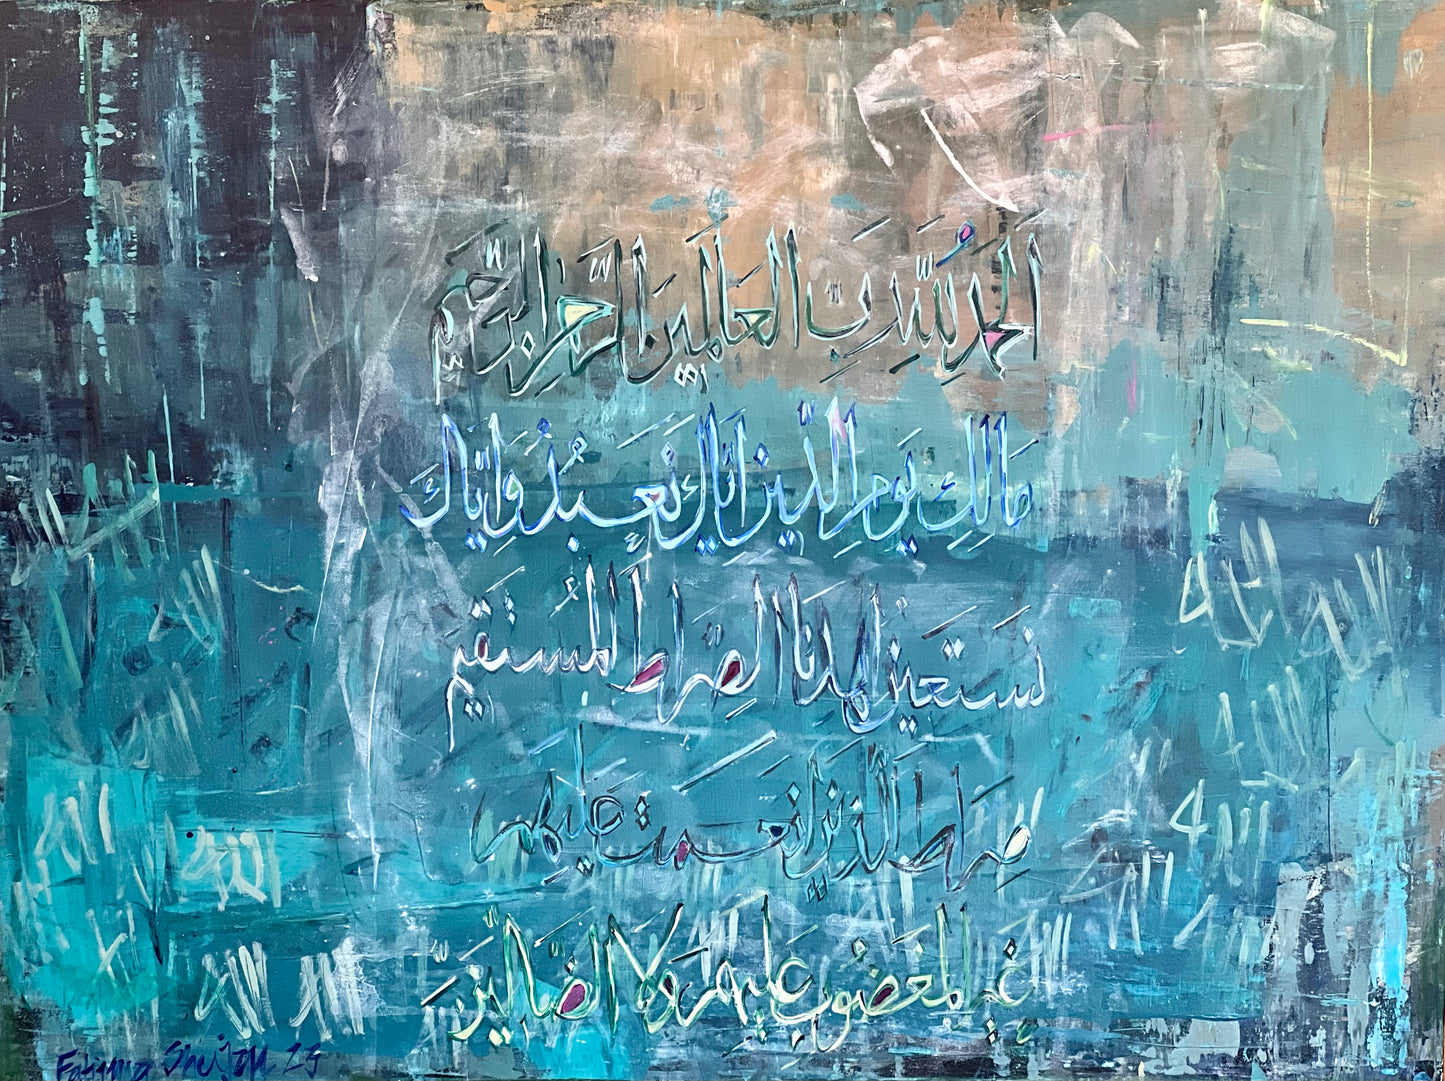 اَلْحَمْدُ لِلّٰهِ رَبِّ الْعَالَمِينَ الرَّحْمٰنِ الرَّحِيمِ
مَالِكِ يَوْمِ الدِّينِ اِيَّاكَ نَعْبُدُ وَاِيَّاكَ
نَسْتَعِينُ اِهْدِنَا الصِّرَاطَ الْمُسْتَقِيمَ
صِرَاطَ الَّذِينَ اَنْعَمْتَ عَلَيْهِمْ
غَيْرِ الْمَغْضُوبِ عَلَيْهِمْ وَلَا الضَّالِّينَ
الله الله
الله الله
الله الله
Fatima Shujah 23